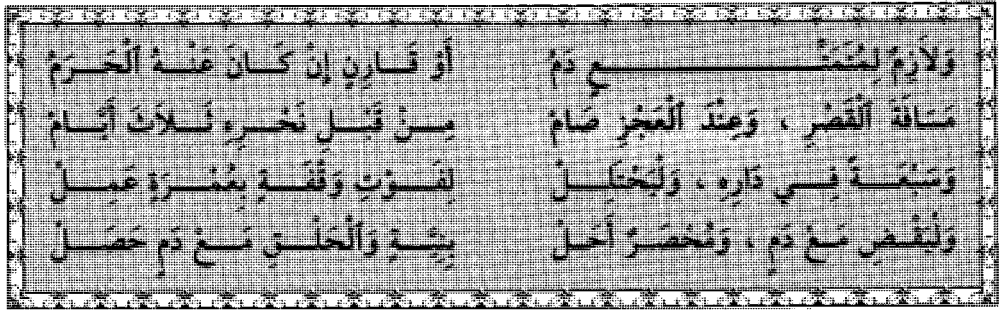 وَلاَزِمٌ لِمُتَمَتِّعٍ دَمْ أَوْ قَارِنٍ إِنْ كَانَ عَنْهُ الْحَرَمْ
مَسَافَةَ الْقَصْرِ ، وَعِنْدَ الْعَجْزِ صَامْ مِنْ قَبْلِ نَحْرِهِ ثَلاَثَ أَيَّامْ
وَسَبْعَةً فِي دَارِهِ ، وَلْيَحْتَلِلْ لِفَوْتِ وَقْفَةٍ بِعُمْرَةٍ عَمِلْ
وَلْيَقْضِ مَعْ دَمٍ ، وَمُحْصَرٌ أَحَلْ بِنِيَّةٍ وَالْحَلْقِ مَعْ دَمٍ حَصَلْ